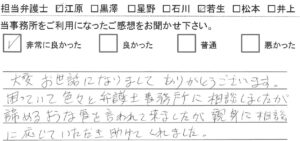 担当弁護士 ☑江原 □黒澤 □星野 □石川 ☑若生 □松本 □井上
当事務所をご利用になったご感想をお聞かせ下さい。
☑ 非常に良かった □ 良かった □ 普通 □ 悪かった
大変お世話になりまして ありがとうございます。
困っていて色々と弁護士事務所に相談しましたが
諦めるような旨を言われて来ましたが 親身に相談
に応じていただき助けてくれました。